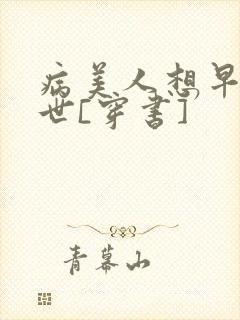 病美人想早
世[穿书]
青幕山